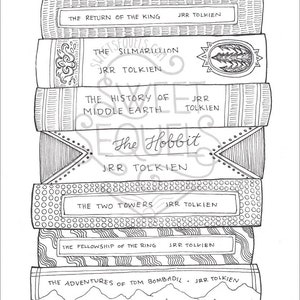 THE RETURN OF THE KING JRR TOLKIEN
THE SILMARILLION
JRR TOLKIEN
THE HISTORY OF MIDDLE EARTH JRR TOLKIEN
The Hobbit
JRR TOLKIEN
THE TWO TOWERS JRR TOLKIEN
THE FELLOWSHIP OF THE RING JRR TOLKIEN
THE ADVENTURES OF TOM BOMBADIL • JRR TOLKIEN
SWEET
SEQUELS